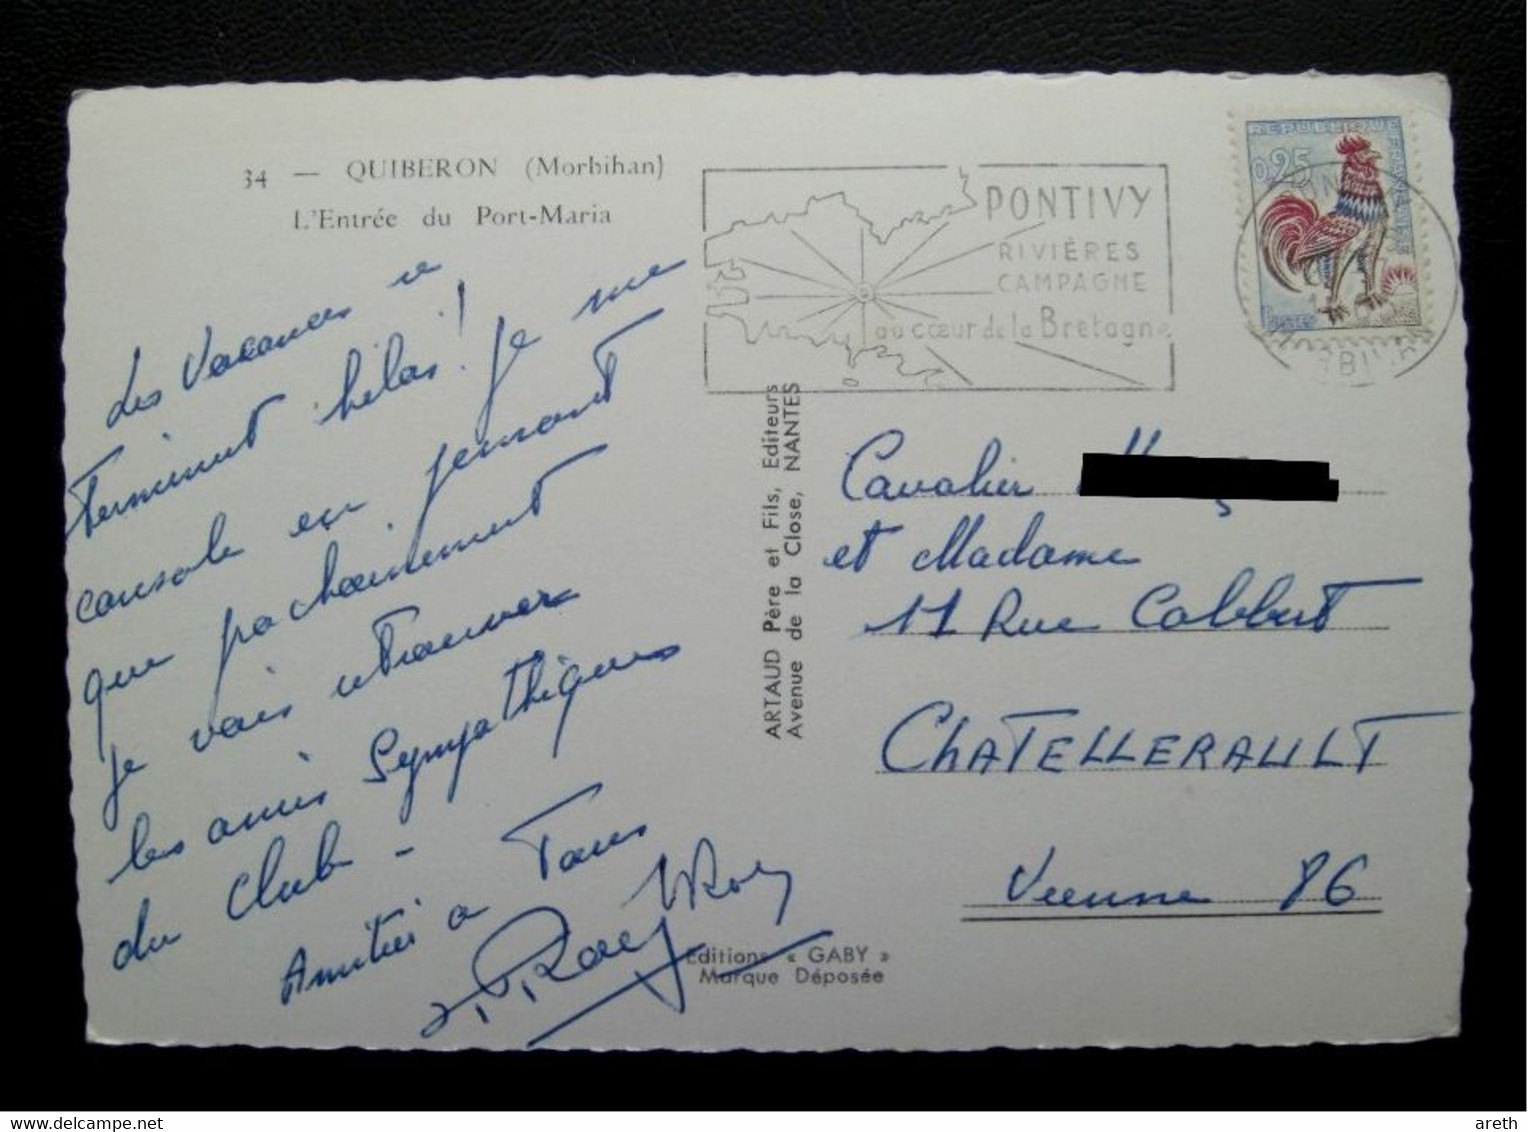 34 — QUIBERON (Morbihan)
L'Entrée du Port-Maria
Les Vacances se
terminent hélas! Je me
console en pensant
que prochainement
je vais retrouver
les amis Sympathiques
du Club -
Amitiés à Tous
PONTIVY
RIVIÈRES
CAMPAGNE
au cœur de la Bretagne
REPUBLIQUE FRANÇAISE
0,25
POSTES
ARTAUD Père et Fils, Editeurs
Avenue de la Close, NANTES
Cavalier
et Madame
11 Rue Colbert
CHATELLERAULT
Vienne 86
Editions « GABY »
Marque Déposée
areth